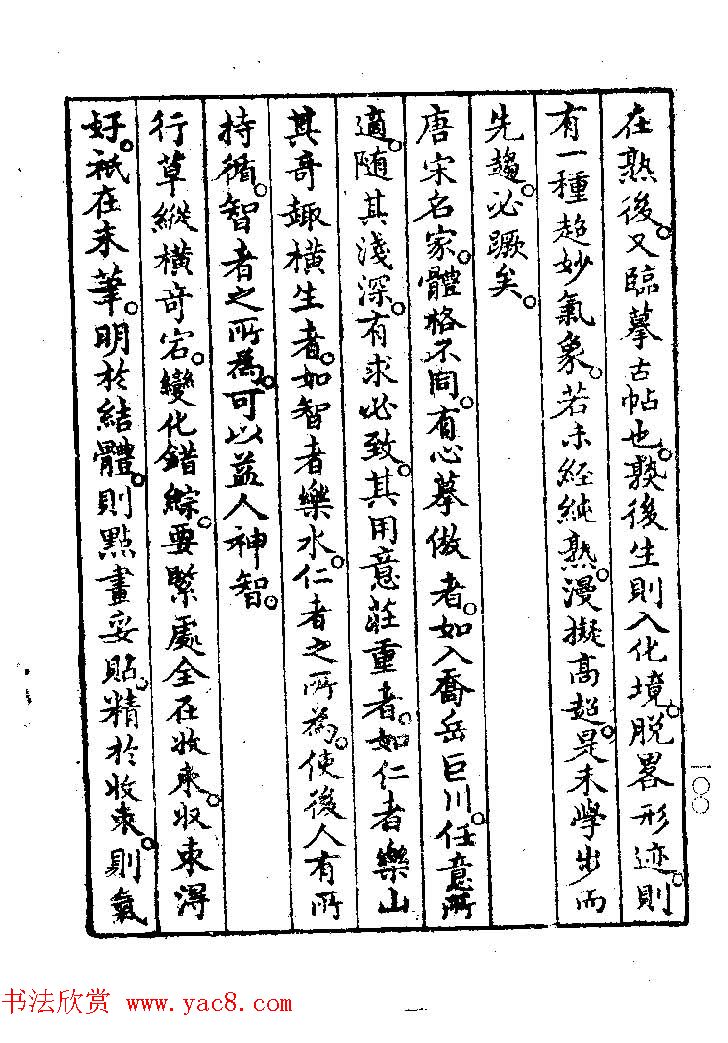 在熟後。又臨摹古帖也。熟後生則入化境。脫畧形迹。則
有一種超妙氣象。若未經純熟。漫擬高超。是未學步而
先趨。必蹶矣。
唐宋名家。體格不同。有心摹倣者。如入喬岳巨川。任意所
適。隨其淺深。有求必致。其用意莊重者。如仁者樂山
其奇趣橫生者。如智者樂水。仁者之所為。使後人有所
持循。智者之所為。可以益人神智。
行草縱橫奇宕。變化錯綜。要緊處全在收束。收束得
好。祇在末筆。明於結體。則點畫妥貼。精於收束。則氣
一〇〇
书法欣赏 www.yac8.com